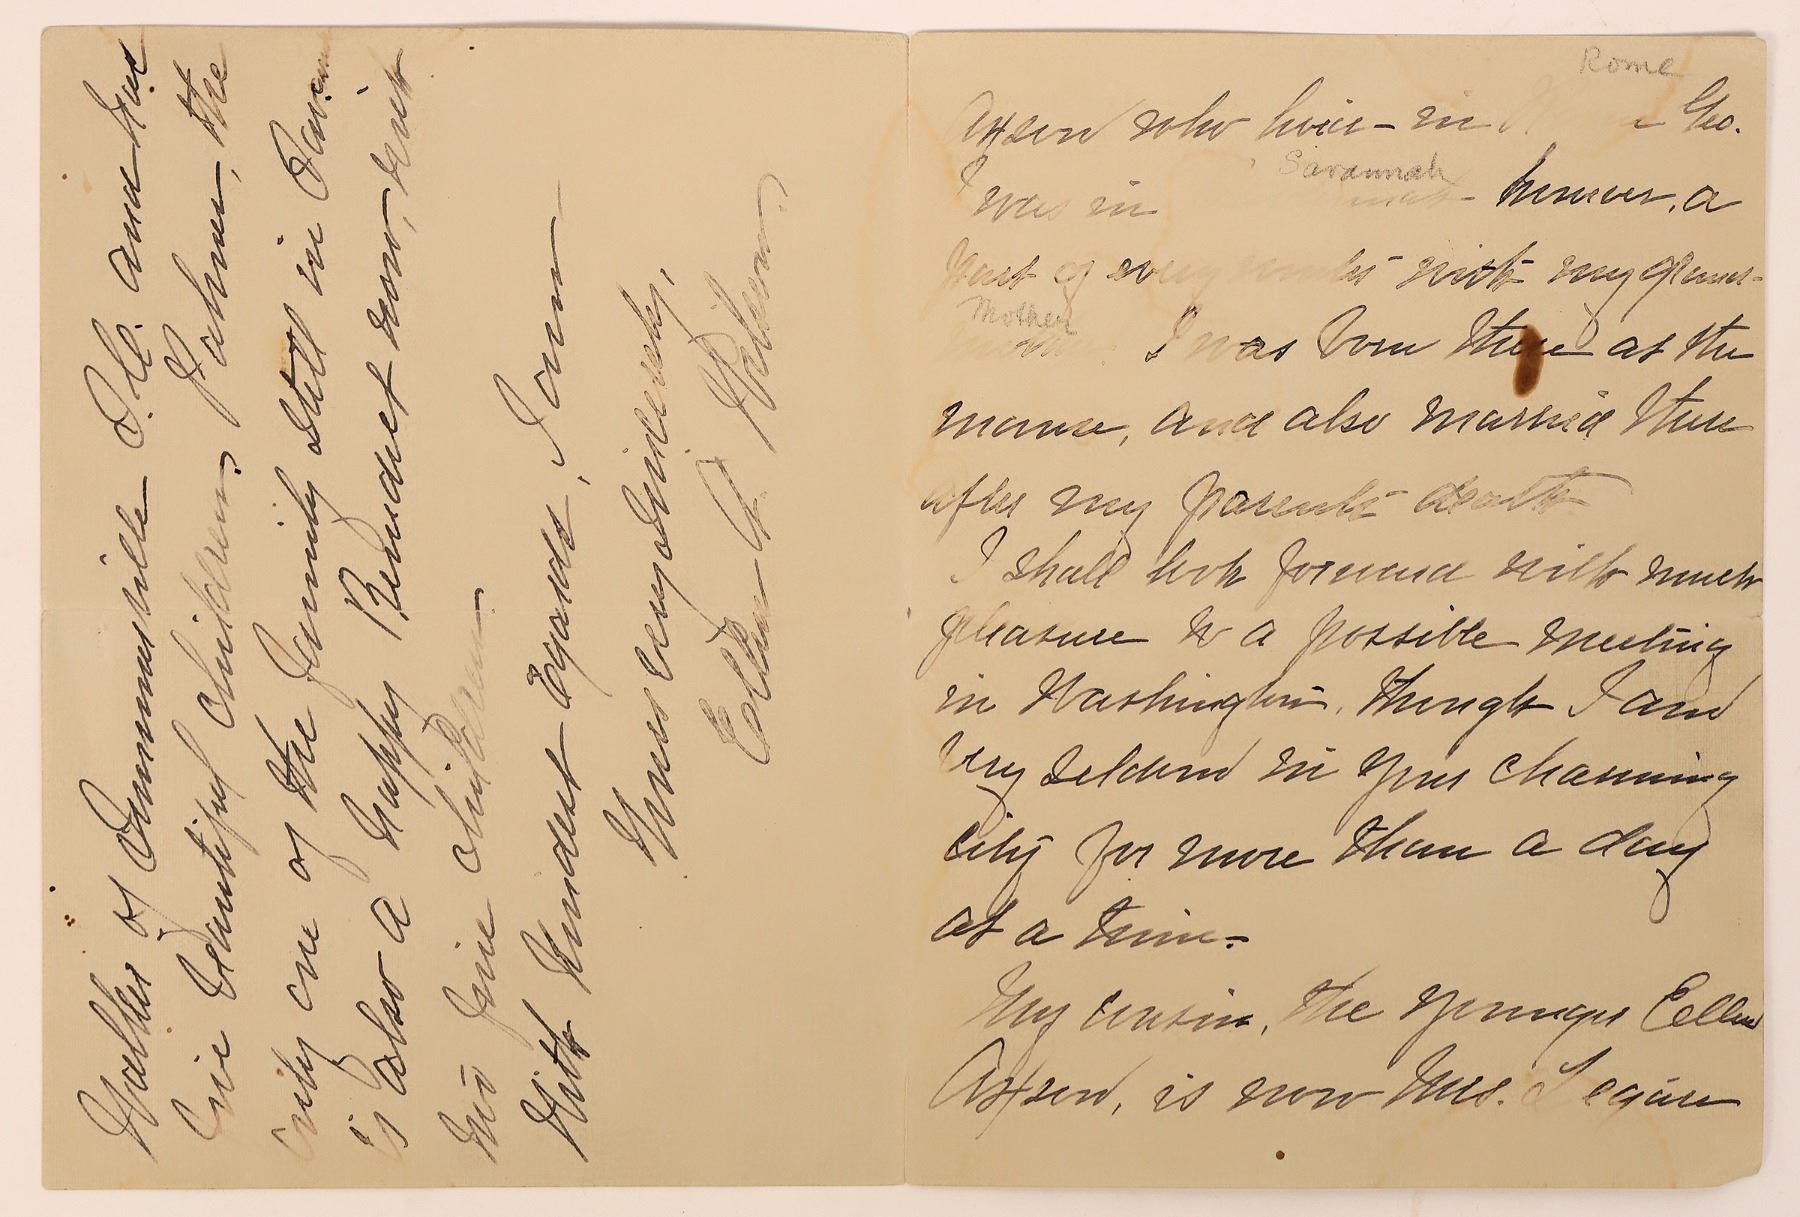 Rome
Axson who live in Geo.
Savannah
I was in however, a
part of every winter with my grand-
Mother
mother. I was born there at the
manse, and also married there
after my parents' death
I shall look forward with much
pleasure to a possible meeting
in Washington, though I am
very seldom in your charming
city for more than a day
at a time.
My cousin, the younger Ellen
Axson, is now Mrs. Legare
Walker of Summerville S.C. and has
five beautiful children. Palmer, the
only one of the family still in Sav.
is also a happy Benedict now, with
two fine children.
With kindest regards, I am
Yours very sincerely,
Ellen A. Wilson.